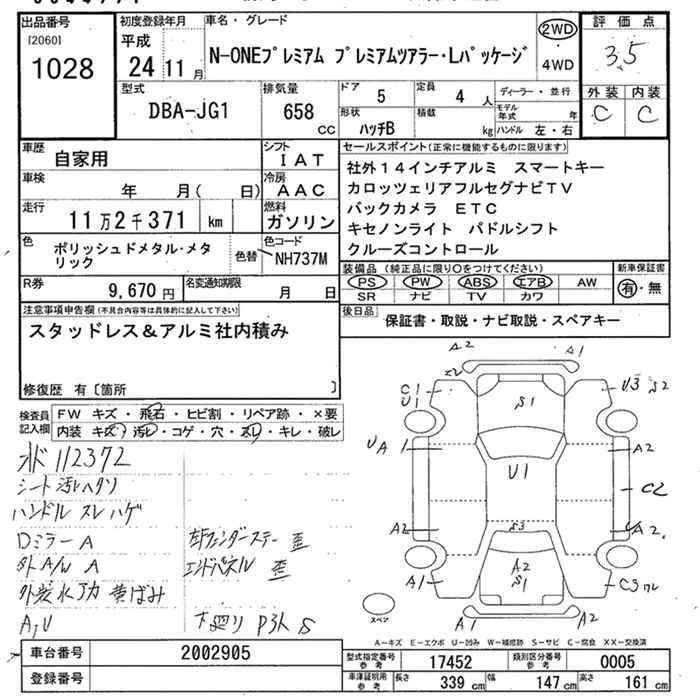 出品番号
[2060]
1028
初度登録年月
平成
24 11 月
車名・グレード
N-ONEプレミアム プレミアムツアラー・Lパッケージ
2WD
・
4WD
評価点
3.5
外装 内装
C C
型式
DBA-JG1
排気量
658
CC
ドア 5
定員 4 人
形状 ハッチB
積載 kg
ディーラー・並行
モデル年式 年
ハンドル 左・右
車歴
自家用
シフト
IAT
車検
年 月( 日)
冷房
AAC
走行
11万2千371 km
燃料
ガソリン
色
ポリッシュドメタル・メタリック
色替
色コード
NH737M
R券
9,670 円
名変通知期限
月 日
セールスポイント(正常に機能するものに限ります)
社外14インチアルミ スマートキー
カロッツェリアフルセグナビTV
バックカメラ ETC
キセノンライト パドルシフト
クルーズコントロール
装備品(純正品に限り○をつけてください)
PS PW ABS エアB AW
SR ナビ TV カワ
新車保証書
有・無
後日品
保証書・取説・ナビ取説・スペアキー
注意事項申告欄(不具合内容等は具体的に記入して下さい)
スタッドレス&アルミ社内積み
修復歴 有〔箇所 〕
検査員
記入欄
FW キズ・飛石・ヒビ割・リペア跡・×要
内装 キズ・汚レ・コゲ・穴・スレ・キレ・破レ
112372
シート汚レ ヘタリ
ハンドル スレ ハゲ
Dミラー A
外A/W A
外装 水アカ 黄ばみ
A,U
右Fフェンダーステー 歪
エンドパネル 歪
下廻り P3ケ S
A2
A1
C1
U1
S1
U3 S2
UA 1
U1
A2
C2
A2
S3
UA2
A1
A2
S1
C3
A1
A2
スペア
A-キズ E-エクボ U-凹み W-補修跡 S-サビ C-腐食 XX-交換済
車台番号
2002905
登録番号
型式指定番号
参考
17452
類別区分番号
参考
0005
車庫証明用
参考
長さ 339 cm 幅 147 cm 高さ 161 cm